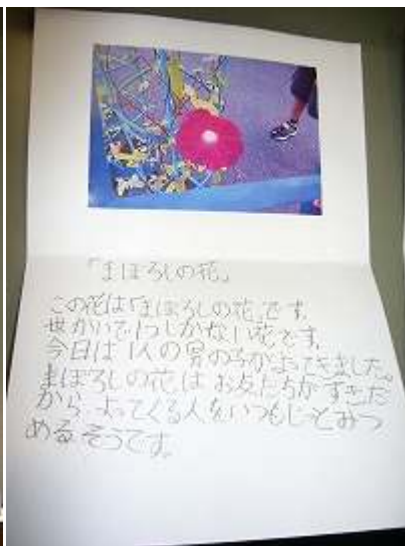 「まぼろしの花」
この花は「まぼろしの花」です。
世かいで1つしかない花です。
今日は1人の男の子がよってきました。
まぼろしの花はお友だちがすきだ
から よってくる人をいつもじっとみつ
めるそうです。